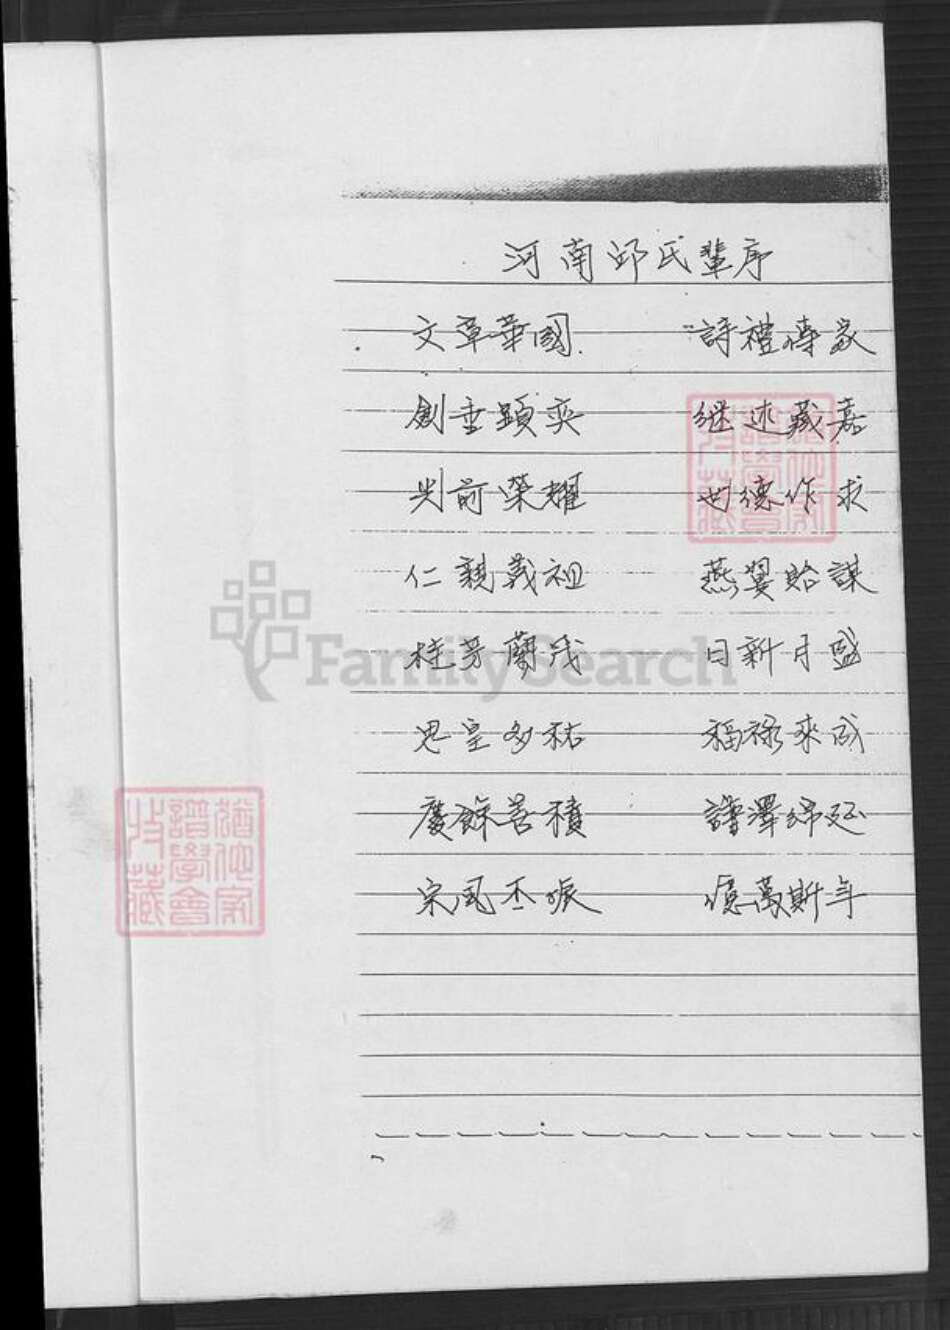 河南邱氏輩序
文章華國 詩禮傳家
創垂顕奕 继述藏嘉
光前榮耀 世德作求
仁親義祖 燕翼貽謀
桂芳蘭茂 日新月盛
思皇多祜 福禄來成
慶餘善積 譜澤綿延
宗風丕振 億萬斯年
FamilySearch
譜學會
收藏